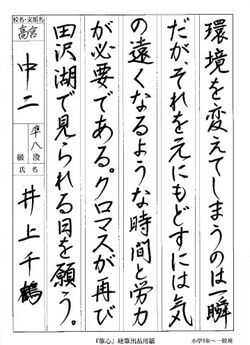 環境を変えてしまうのは一瞬
だが、それをえにもどすには気
の遠くなるような時間と労力
が必要である。クロマスが再び
田沢湖で見られる日を願う。
校名・支部名
高宮
中二
準八段
級
氏名
井上千鶴
『筆心』硬筆出品用紙
小学5年~一般用